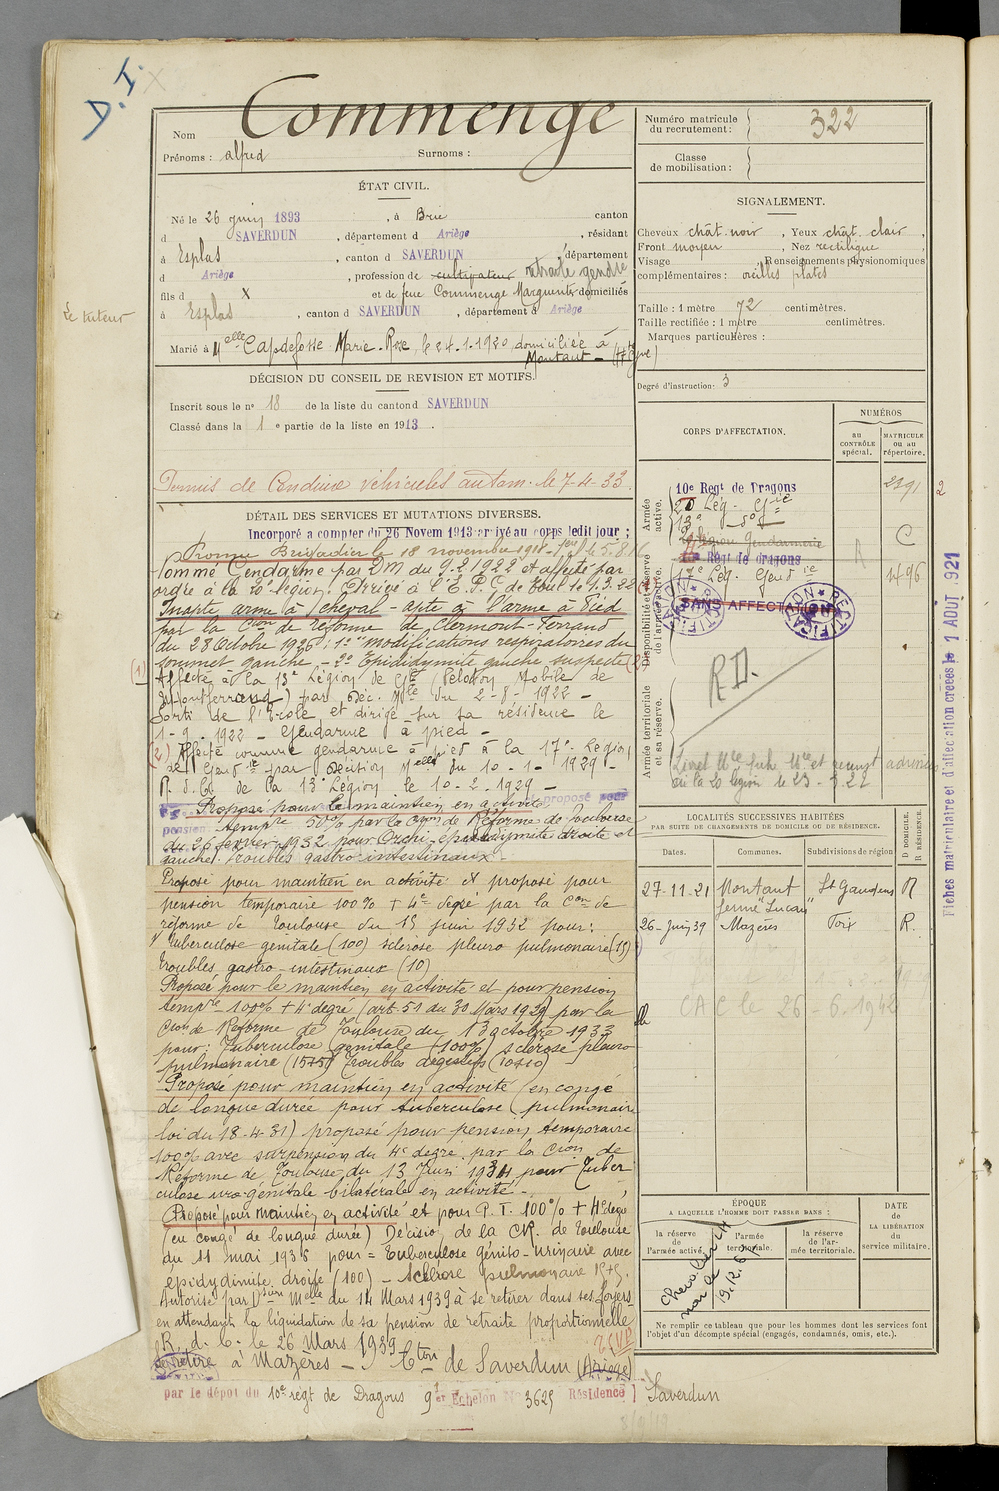 D.I.
Nom Commenge
Prénoms : alfred Surnoms :
ÉTAT CIVIL.
Né le 26 juin 1893, à Brie canton
d SAVERDUN, département d Ariège, résidant
à Esplas, canton d SAVERDUN, département
d Ariège, profession de cultivateur retraité gendre
fils d X et de feue Commenge Marguerite domiciliés
Le tuteur
à Esplas, canton d SAVERDUN, département d Ariège
Marié à Melle Capdefosse Marie-Rose, le 24.1.1920, domiciliée à
Montaut - (Hte Gne)
DÉCISION DU CONSEIL DE REVISION ET MOTIFS.
Inscrit sous le no 18 de la liste du canton d SAVERDUN
Classé dans la 1e partie de la liste en 1913.
Permis de Conduire véhicules autom. le 7-4-33.
DÉTAIL DES SERVICES ET MUTATIONS DIVERSES.
Incorporé a compter du 26 Novem 1913 arrivé au corps ledit jour ;
Promu Brigadier le 18 novembre 1918
Nommé Gendarme par DM du 9.2.1922 et affecté par
ordre à la 20e légion. Dirigé à l'E.P.C de Toul le 1.3.22
Inapte arme à cheval - apte à l'arme à Pied
par la Cion de réforme de Clermont-Ferrand
du 28 Octobre 1926 : 1o modifications respiratoires du
sommet gauche - 2o Epididymite gauche suspecte (2)
(1) Affecté à la 13e Légion de Gie (Peloton Mobile de
Montferrand) par Déc. Mlle du 2-8-1922 -
Sorti de l'Ecole et dirigé sur sa résidence le
1-9-1922 - Gendarme à pied -
(2) Affecté comme gendarme à pied à la 17e Légion
de Gendie par Décision Melle du 10-1-1929 -
R. d. C. de la 13e Légion le 10-2-1929 -
Proposé pour le maintien en activité proposé pour
pension tempre 50% par la Cion de Réforme de Toulouse
du 26 février 1932 pour Orchi-épididymite droite et
gauche. troubles gastro intestinaux -
Proposé pour maintien en activité et proposé pour
pension temporaire 100% + 4e degré par la Con de
réforme de Toulouse du 15 juin 1932 pour :
Tuberculose génitale (100) sclérose pleuro pulmonaire (15)
troubles gastro-intestinaux (10)
Proposé pour le maintien en activité et pour pension
tempre 100% + 4e degré (art 51 du 30 Mars 1929) par la
Cion de Réforme de Toulouse du 13 octobre 1933
pour : Tuberculose génitale (100%) sclérose pleuro-
pulmonaire (15+5) Troubles digestifs (10+10)
Proposé pour maintien en activité (en congé
de longue durée pour tuberculose (pulmonaire
loi du 18-4-31) proposé pour pension temporaire
100% avec surpension du 4e degré par la Cion de
Réforme de Toulouse du 13 Juin 1934 pour Tuber
culose uro-génitale bilatérale en activité -
Proposé pour maintien en activité et pour P.T. 100% + 4e degré
(en congé de longue durée) Décision de la CR. de Toulouse
du 11 mai 1936 pour = Tuberculose Génito-Urinaire avec
épididymite droite (100) - Sclérose pulmonaire 15+5.
Autorisé par Dsion Melle du 14 Mars 1939 à se retirer dans ses foyers
en attendant la liquidation de sa pension de retraite proportionnelle
R. d. C. le 26 Mars 1939
se retire à Mazères - Cton de Saverdun (Ariège)
par le dépot du 10e regt de Dragons 9 er Echelon No 3625 Résidence Saverdun
Numéro matricule
du recrutement : 322
Classe
de mobilisation :
SIGNALEMENT.
Cheveux chât. noir, Yeux chât. clair,
Front moyen, Nez rectiligne,
Visage Renseignements physionomiques
complémentaires : oreilles plates
Taille : 1 mètre 72 centimètres.
Taille rectifiée : 1 mètre centimètres.
Marques particulières :
Degré d'instruction : 3
CORPS D'AFFECTATION.
NUMÉROS
au
CONTRÔLE
spécial.
MATRICULE
ou au
répertoire.
Armée active.
10e Regt de Dragons 2391
20 Lég. Gie
13e - do -
Légion Gendarmerie C
Disponibilité et réserve de l'armée active.
Regt de dragons
17e Lég. Gend ie
SANS AFFECTATION
RECTIFICATION
RECTIFICATION
R.D.
Armée territoriale et sa réserve.
Livret Mle fiche Mle et recrut adminis
à la 20 légion le 23-3.22
LOCALITÉS SUCCESSIVES HABITÉES
PAR SUITE DE CHANGEMENTS DE DOMICILE OU DE RÉSIDENCE.
Dates. Communes. Subdivisions de région D DOMICILE. R RÉSIDENCE.
27-11-21 Montaut St Gaudens R
ferme "Lucau"
26-Juin 39 Mazères Foix R.
CAC le 26-6.1942
ÉPOQUE
A LAQUELLE L'HOMME DOIT PASSER DANS :
la réserve
de
l'armée active.
l'armée
territoriale.
la réserve
de l'ar-
mée territoriale.
DATE
de
LA LIBÉRATION
du
service militaire.
Chevalier LH
19.12.57
Ne remplir ce tableau que pour les hommes dont les services font
l'objet d'un décompte spécial (engagés, condamnés, omis, etc.).
Fiches matriculaire et d'affectation créées le 1 AOUT 1921